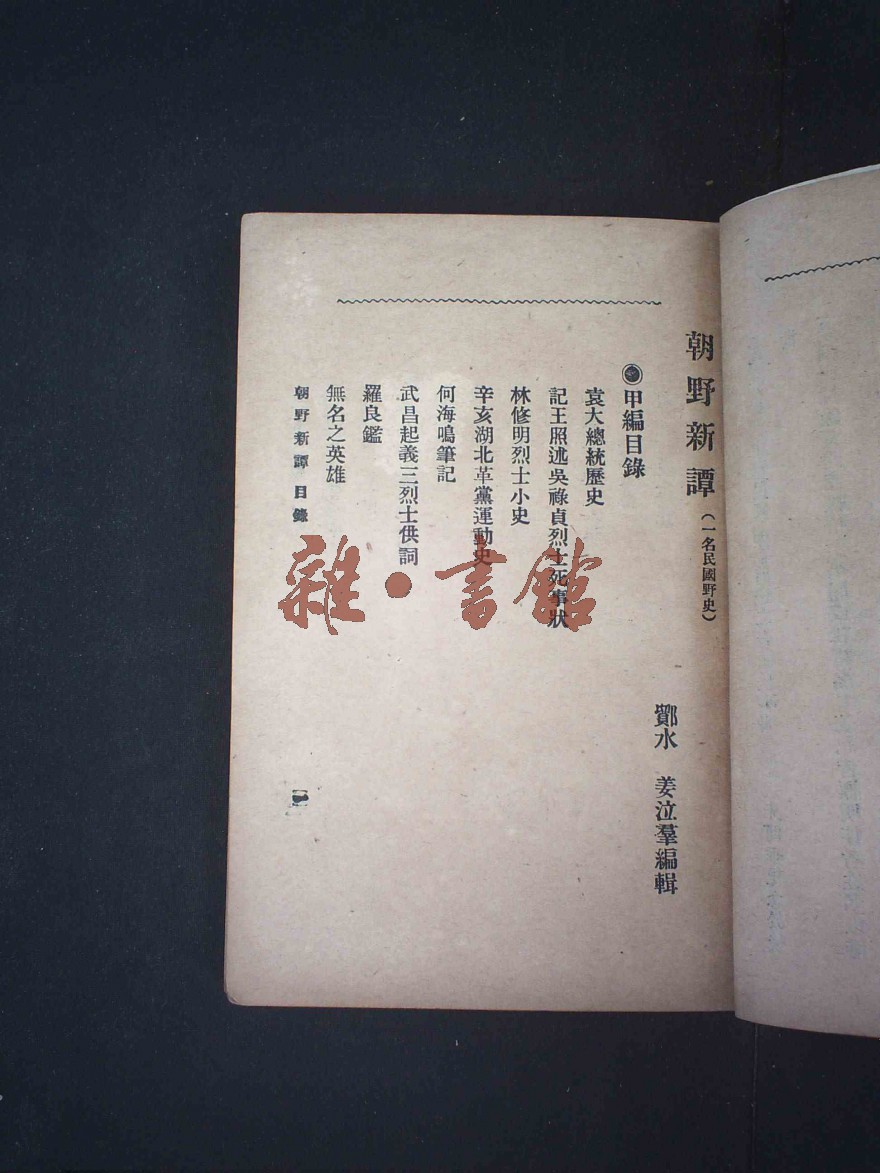 朝野新譚(一名民國野史)
鄮水　姜泣羣編輯
◉甲編目錄
袁大總統歷史
記王照述吳祿貞烈士死事狀
林修明烈士小史
辛亥湖北革黨運動史
何海鳴筆記
武昌起義三烈士供詞
羅良鑑
無名之英雄
朝野新譚 目錄
一
雜·書館